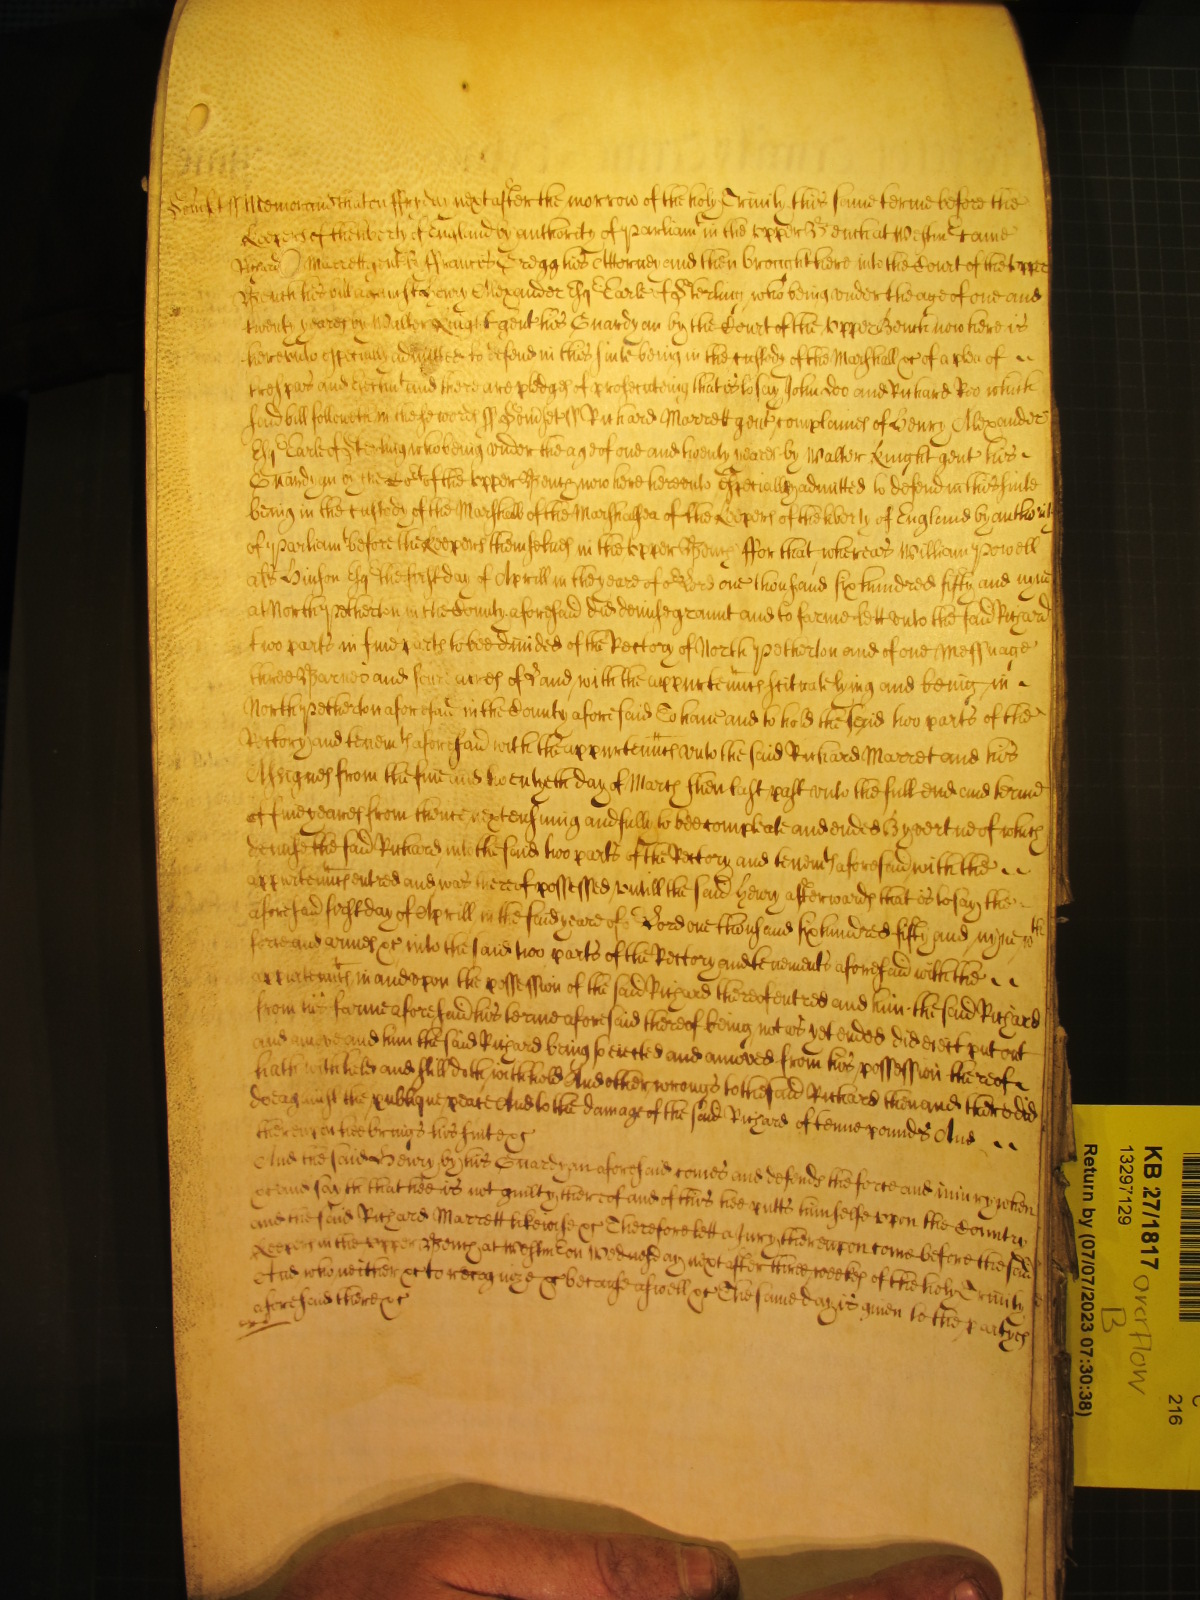 Somst ss Memorand that on ffryday next after the morrow of the holy Trinity this same terme before the
Keepers of the liberty of England by authority of Parliamt in the upper Bench at Westm came
Richard Marrett gent by ffrancis Gregg his Attorney and then brought here into the Court of the upper
Bench his bill against Henry Alexander Esq Earle of Sterling who being under the age of one and
twenty yeares by Walter Knight gent his Guardyan by the Court of the upper Bench now here is
hereunto especially admitted to defend in this suite being in the custody of the Marshall &c of a plea of
trespas and eiectmt and there are pledges of prosecuteing that is to say John Doo and Richard Roo which
said bill followeth in these words ss Somset ss Richard Marrett gent complaines of Henry Alexander
Esq Earle of Sterling who being under the age of one and twenty yeares by Walter Knight gent his
Guardyan by the Cort of the upper Bench now here hereunto especially admitted to defend in this suite
being in the custody of the Marshall of the Marshalsea of the Keepers of the liberty of England by authority
of Parliamt before the Keepers themselves in the upper Bench ffor that whereas William Powell
als Hinson Esq the first day of Aprill in the yeare of or Lord one thousand six hundred fifty and nyne
at North Petherton in the County aforesaid did demise graunt and to farme lett unto the said Richard
two parts in five parts to bee divided of the Rectory of North Petherton and of one Messuage
three Barnes and acres of Land with the appurtenncs scituate lying and being in
North Petherton aforesaid in the County aforesaid To have and to hold the said two parts of the
Rectory and tenemts aforesaid with the appurtenncs unto the said Richard Marret and his
Assignes from the five and twentyeth day of March then last past unto the full end and terme
of five yeares from thence next ensuing and fully to bee compleate and ended By vertue of which
demise the said Richard into the said two parts of the Rectory and tenemts aforesaid with the
appurtenncs entred and was thereof possessed untill the said Henry afterwards that is to say the
aforesaid first day of Aprill in the said yeare of or Lord one thousand six hundred fifty and nyne with
force and armes &c into the said two parts of the Rectory and tenements aforesaid with the
appurtenncs in and upon the possession of the said Richard thereof entred and him the said Richard
from his farme aforesaid his terme aforesaid thereof being not as yet ended did eiect put out
and amove and him the said Richard being so eiected and amoved from his possession thereof
hath withheld and still doth withhold And other wrongs to the said Richard then and there did
doe against the publique peace And to the damage of the said Richard of tenne pounds And
thereupon hee brings his suite &c
And the said Henry by his Guardyan aforesaid comes and defends the force and iniury when
&c and saith that hee is not guilty thereof and of this hee putts himselfe upon the Country
and the said Richard Marrett likewise &c Therefore lett a Jury thereupon come before the said
Keepers in the upper Bench at Westm on Wednesday next after three weekes of the holy Trinity
And who neither &c to recognize &c because aswell &c The same day is given to the partyes
aforesaid there &c
KB 27/1817
13297129
Return by (07/07/2023 07:30:38)
overflow
B
216